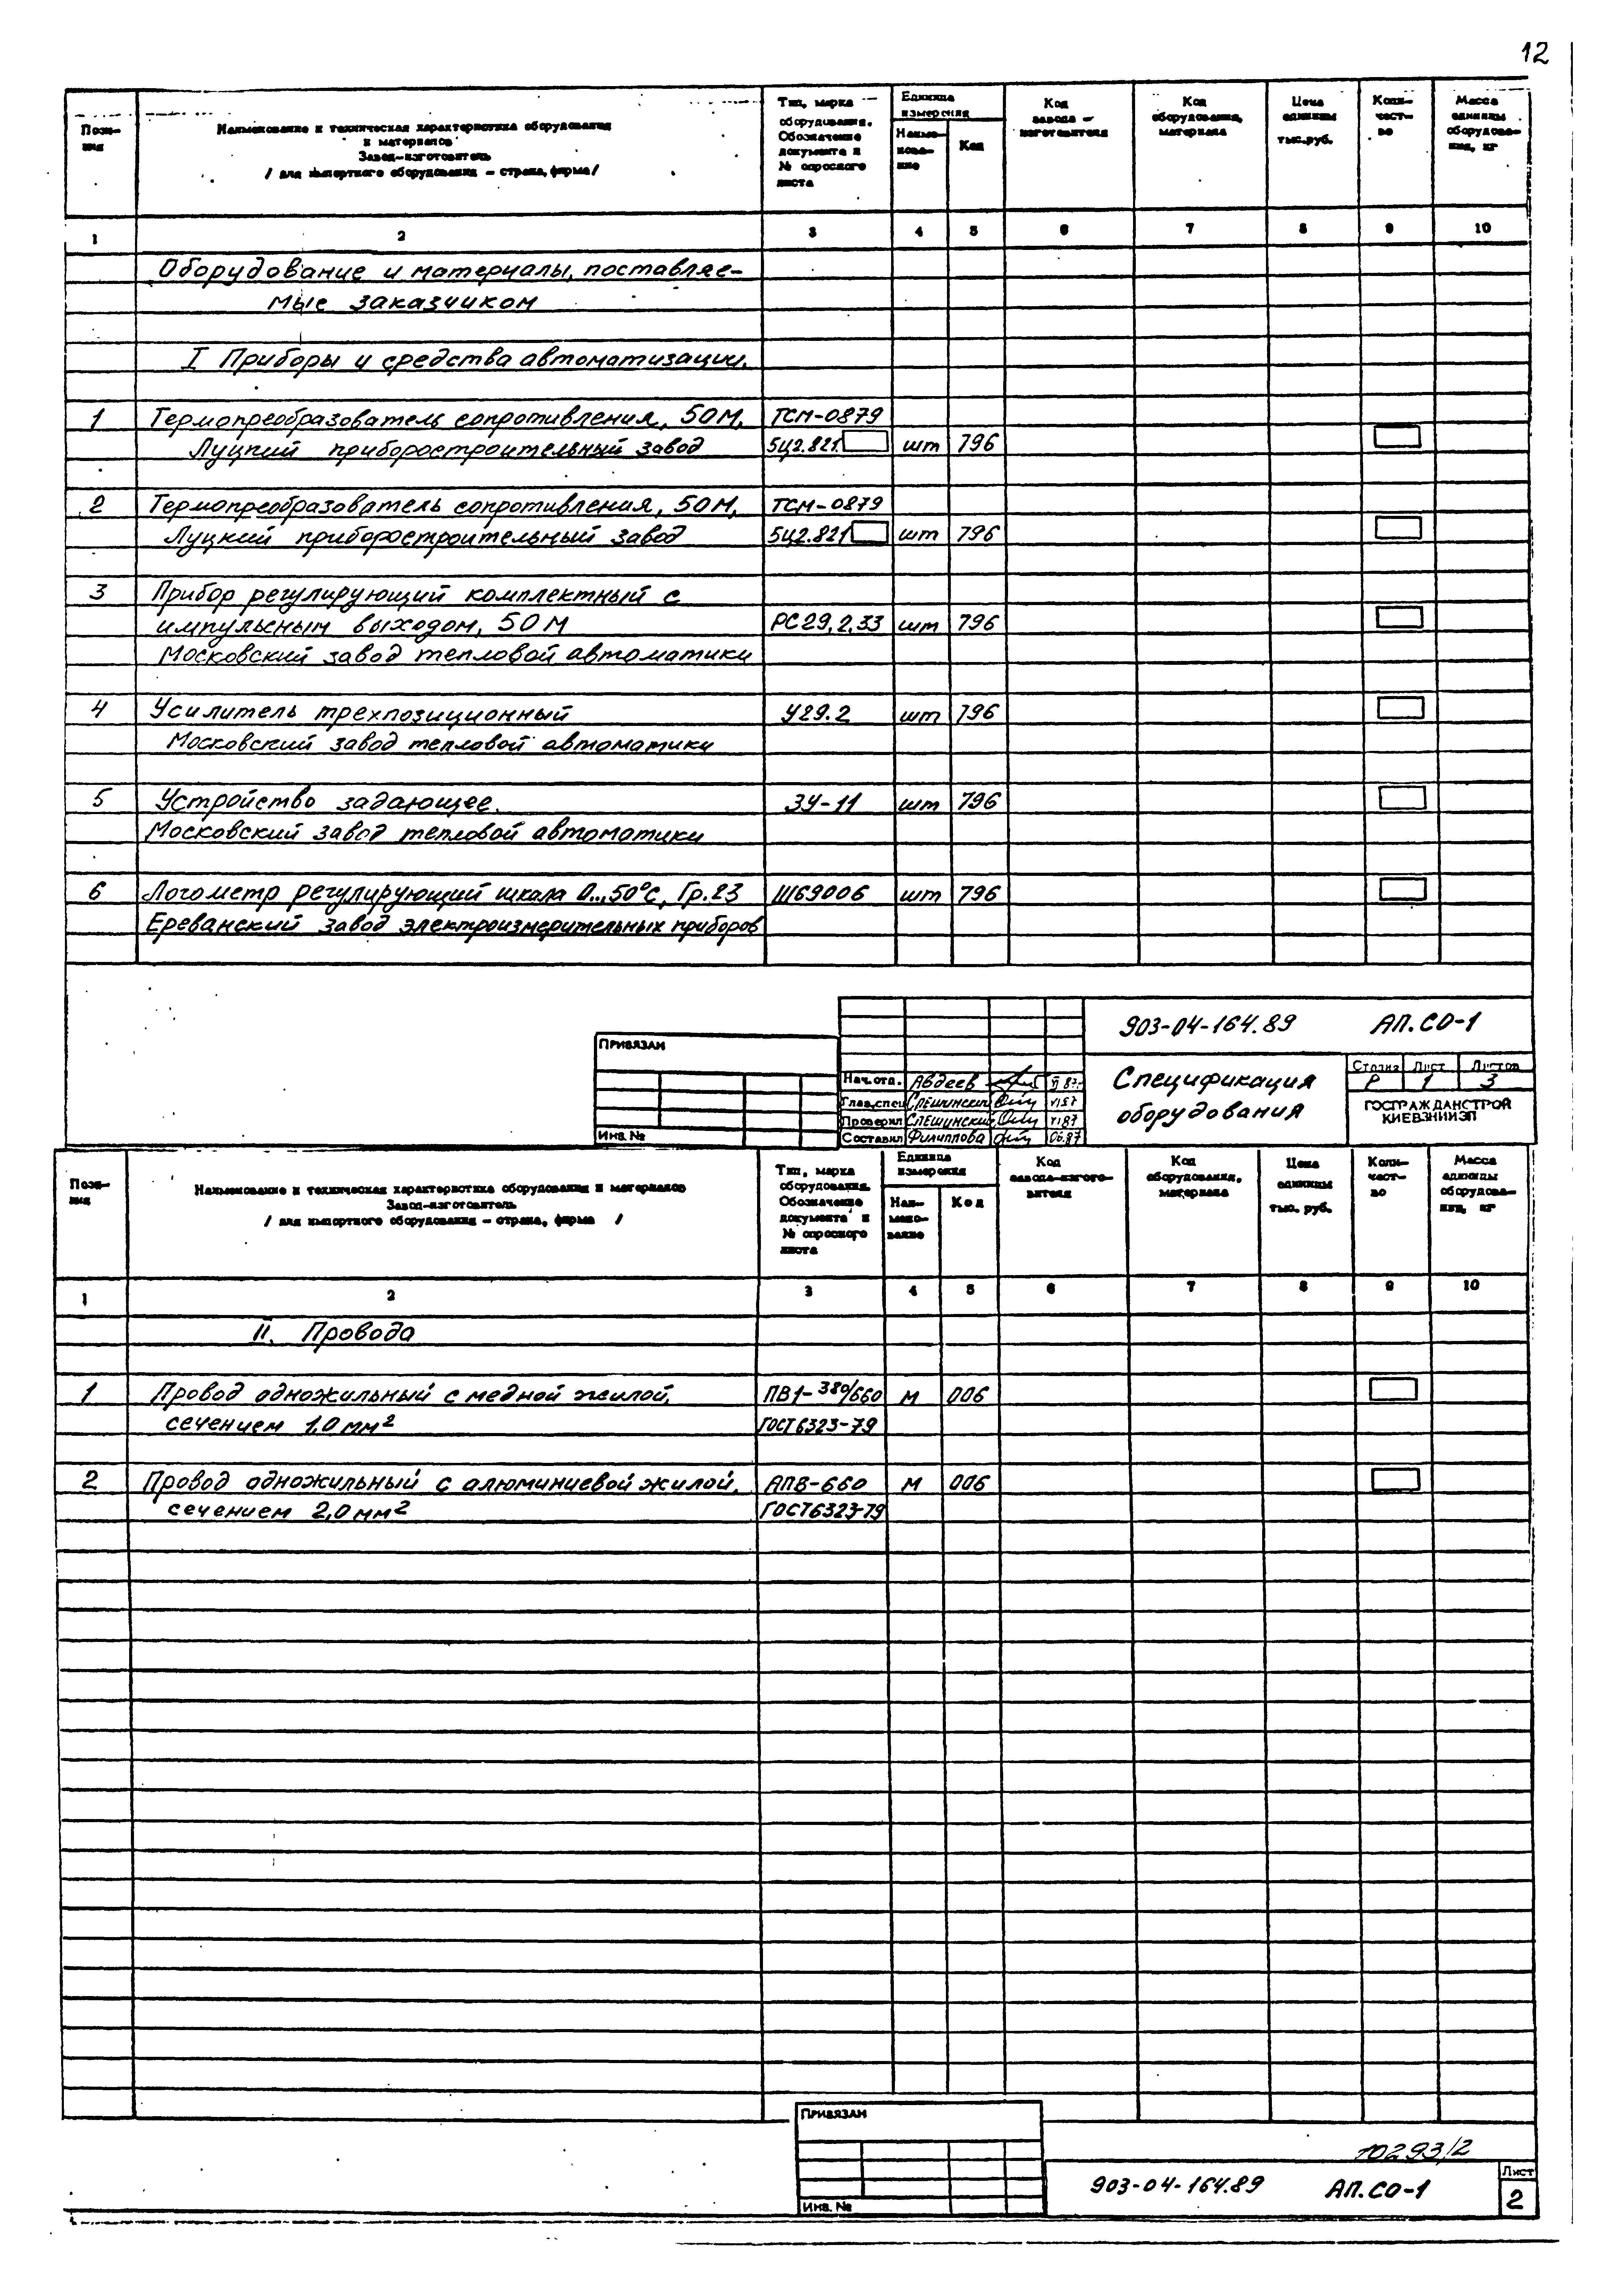 12
Пози-
ция
Наименование и техническая характеристика оборудования
и материалов
Завод-изготовитель
/ для импортного оборудования - страна, фирма /
Тип, марка
оборудования.
Обозначение
документа и
№ опросного
листа
Единица
измерения
Наиме-
нова-
ние
Код
Код
завода -
изготовителя
Код
оборудования,
материала
Цена
единицы
тыс.руб.
Коли-
чест-
во
Масса
единицы
оборудова-
ния, кг
1 2 3 4 5 6 7 8 9 10
Оборудование и материалы, поставляе-
мые заказчиком
I Приборы и средства автоматизации.
1 Термопреобразователь сопротивления, 50М, ТСМ-0879
Луцкий приборостроительный завод 5Ц2.821. шт 796
2 Термопреобразователь сопротивления, 50М, ТСМ-0879
Луцкий приборостроительный завод 5Ц2.821 шт 796
3 Прибор регулирующий комплектный с
импульсным выходом, 50М РС29.2.33 шт 796
Московский завод тепловой автоматики
4 Усилитель трехпозиционный У29.2 шт 796
Московский завод тепловой автоматики
5 Устройство задающее. ЗУ-11 шт 796
Московский завод тепловой автоматики
6 Логометр регулирующий шкала 0...50°С, Гр.23 Ш69006 шт 796
Ереванский завод электроизмерительных приборов
Привязан
Инв. №
903-04-164.89 АП.СО-1
Нач.отд. Авдеев
Глав.спец Слешинский
Проверил Слешинский
Составил Филиппова 06.87
Спецификация
оборудования
Стадия Лист Листов
Р 1 3
ГОСГРАЖДАНСТРОЙ
КИЕВЗНИИЭП
Пози-
ция
Наименование и техническая характеристика оборудования и материалов
Завод-изготовитель
/ для импортного оборудования - страна, фирма /
Тип, марка
оборудования.
Обозначение
документа и
№ опросного
листа
Единица
измерения
Наи-
мено-
вание
Код
Код
завода-изгото-
вителя
Код
оборудования,
материала
Цена
единицы
тыс. руб.
Коли-
чест-
во
Масса
единицы
оборудова-
ния, кг
1 2 3 4 5 6 7 8 9 10
II. Провода
1 Провод одножильный с медной жилой, ПВ1-380/660 м 006
сечением 1,0 мм² ГОСТ 6323-79
2 Провод одножильный с алюминиевой жилой, АПВ-660 м 006
сечением 2,0 мм² ГОСТ6323-79
Привязан
Инв. №
10293/2
903-04-164.89 АП.СО-1
Лист
2